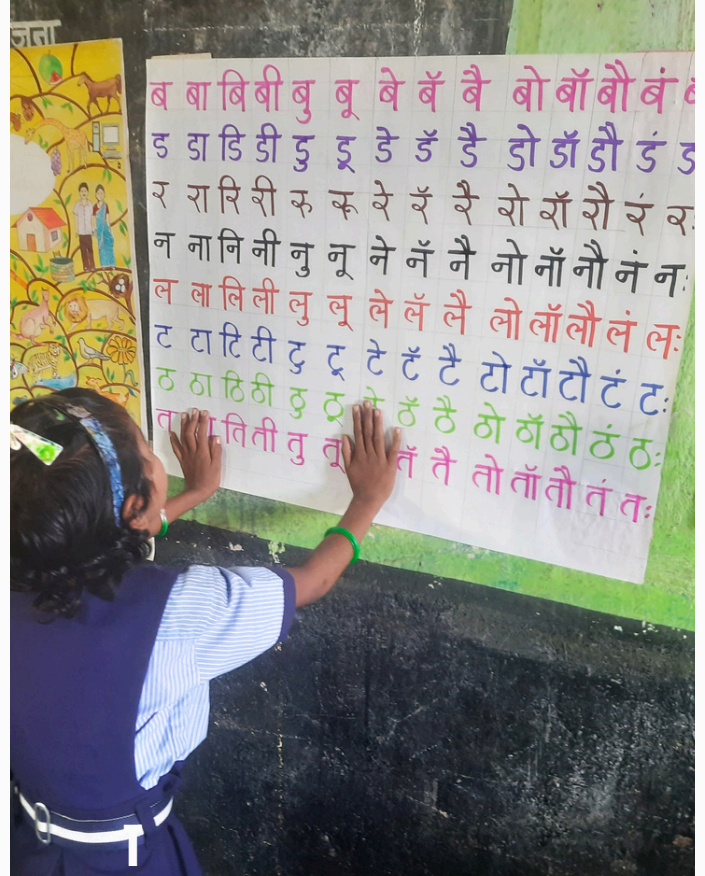 ब बा बि बी बु बू बे बॅ बै बो बॉ बौ बं
ड डा डि डी डु डू डे डॅ डै डो डॉ डौ डं ड
र रा रि री रु रू रे रॅ रै रो रॉ रौ रं रः
न ना नि नी नु नू ने नॅ नै नो नॉ नौ नं नः
ल ला लि ली लु लू ले लॅ लै लो लॉ लौ लं लः
ट टा टि टी टु टू टे टॅ टै टो टॉ टौ टं टः
ठ ठा ठि ठी ठु ठू ठे ठॅ ठै ठो ठॉ ठौ ठं ठः
त ति ती तु तू तॅ तै तो तॉ तौ तं तः